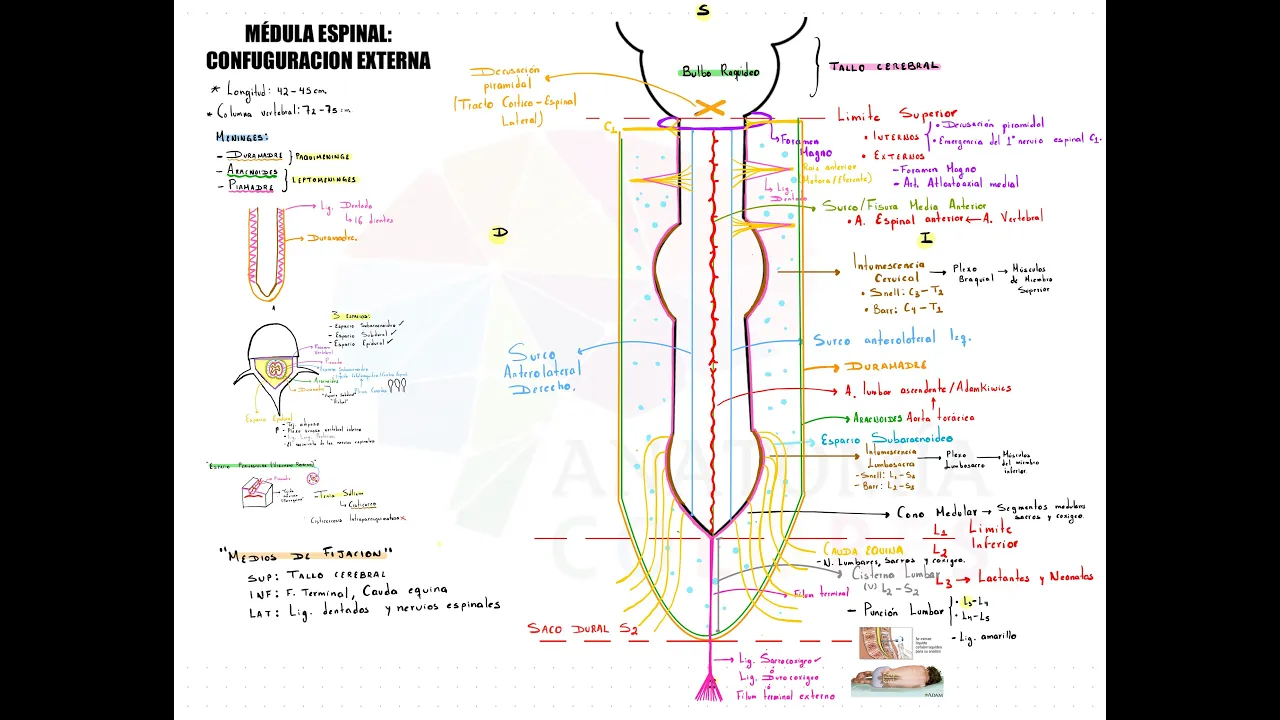 MÉDULA ESPINAL:
CONFUGURACION EXTERNA
* Longitud: 42-45cm.
* Columna vertebral: 72-75cm.
MENINGES:
- DURAMADRE } PAQUIMENINGE
- ARACNOIDES
- PIAMADRE } LEPTOMENINGES
Lig. Dentado
↳ 16 dientes
Duramadre.
3 ESPACIOS:
- Espacio Subaracnoideo ✓
- Espacio Subdural ✓
- Espacio Epidural ✓
Piamadre
Aracnoides
Duramadre
Espacio Epidural
- Tej. adiposo
- Tenia Sólium
↳ Cisticerco
"MEDIOS DE FIJACIÓN"
SUP: TALLO CEREBRAL
INF: F. Terminal, Cauda equina
LAT: Lig. dentados y nervios espinales
S
Bulbo Raquídeo
TALLO CEREBRAL
Decusación
piramidal
(Tracto Cortico-Espinal
Lateral)
C1
Foramen
Magno
Raiz anterior
(Motora/Eferente)
↳ Lig.
Dentado
D
I
Limite Superior
• INTERNOS
• Decusación piramidal
• Emergencia del 1° nervio espinal C1.
• EXTERNOS
- Foramen Magno
- Art. Atlantoaxial medial
Surco/Fisura Media Anterior
• A. Espinal anterior ← A. Vertebral
Intumescencia
Cervical
→ Plexo
Braquial
→ Músculos
de Miembro
Superior
• Snell: C3-T2
• Barr: C4-T1
Surco
Anterolateral
Derecho.
Surco anterolateral Izq.
DURAMADRE
A. lumbar ascendente/Adamkiwics
ARACNOIDES
Aorta torácica
Espacio Subaracnoideo
Intumescencia
Lumbosacra
→ Plexo
Lumbosacro
→ Músculos
del miembro
inferior.
- Snell: L1-S3
- Barr: L2-S3
Cono Medular → Segmentos medulares
sacros y coxigeo.
L1 Limite
L2 Inferior
CAUDA EQUINA
- N. Lumbares, Sacros y coxigeo.
Cisterna Lumbar
(V) L2-S2
L3 → Lactantes y Neonatos
Filum terminal
- Punción Lumbar
• L3-L4
• L4-L5
- Lig. amarillo
SACO DURAL S2
Se extrae
líquido
cefalorraquídeo
para su análisis
Lig. Sacrocoxigeo ✓
ó
Lig. Durocoxigeo
ó
Filum terminal externo
©ADAM
ANATOMÍA